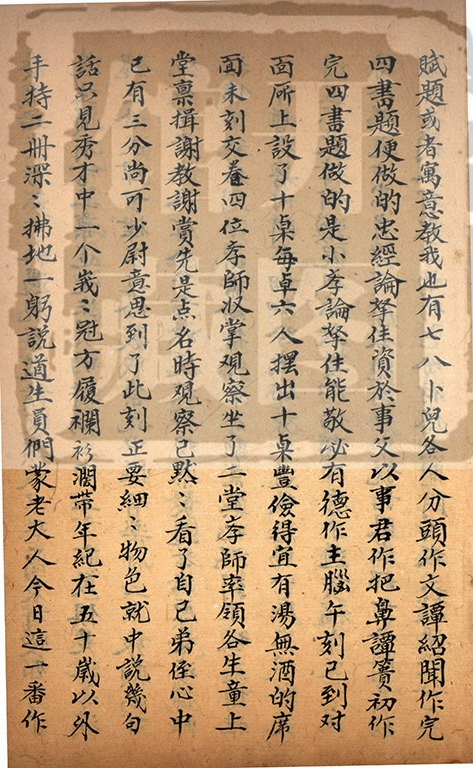 賦題或者寓意教我也有七八小兒各人分頭作文譚紹聞作完
四書題便做的忠經論拏住資於事父以事君作把鼻譚簣初作
完四書題做的是小孝論拏住能敬必有德作主腦午刻已到对
面所上設了十桌每卓六人擺出十桌豐儉得宜有湯無酒的席
面未刻交卷四位孝師収掌观察坐了二堂孝師率領各生童上
堂禀揖謝教謝賞先是点名時观察已黙〻看了自己弟侄心中
已有三分尚可少尉意思到了此刻正要細〻物色就中説幾句
話只見秀才中一个峩〻冠方履襴衫濶带年紀在五十歳以外
手持二册深〻拂地一躬説道生員們蒙老大人今日這一番作